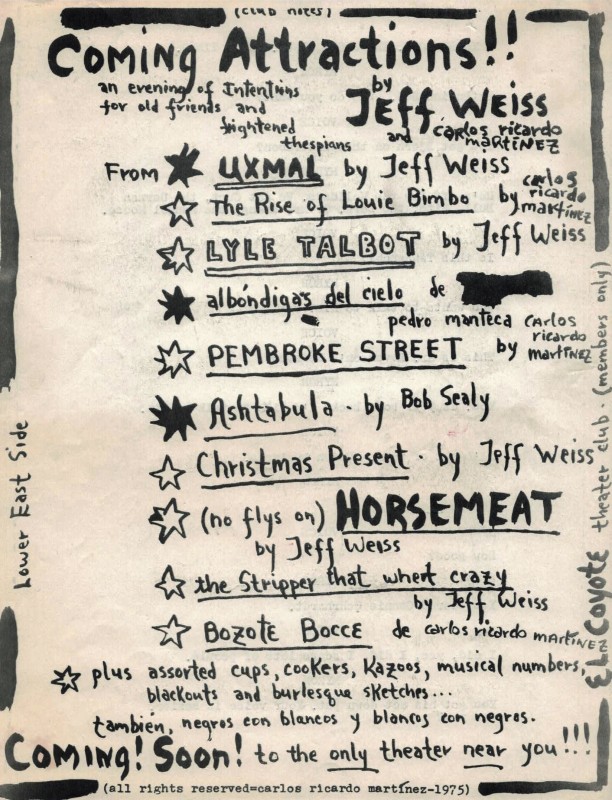 (club notes)
Coming Attractions!!
an evening of Intentions
for old friends and
frightened
thespians
by
Jeff Weiss
and carlos ricardo
martínez
From UXMAL by Jeff Weiss
The Rise of Louie Bimbo by carlos
ricardo
martínez
LYLE TALBOT by Jeff Weiss
albóndigas del cielo de
pedro manteca carlos
ricardo
martínez
PEMBROKE STREET by
Ashtabula · by Bob Sealy
Christmas Present · by Jeff Weiss
(no flys on) HORSEMEAT
by Jeff Weiss
the Stripper that went crazy
by Jeff Weiss
BOZOTE BOCCE de carlos ricardo martínez
plus assorted cups, cookers, kazoos, musical numbers,
blackouts and burlesque sketches...
también, negros con blancos y blancos con negros.
Coming! Soon! to the only theater near you!!!
(all rights reserved=carlos ricardo martínez-1975)
Lower East Side
El Coyote theater club · (members only)